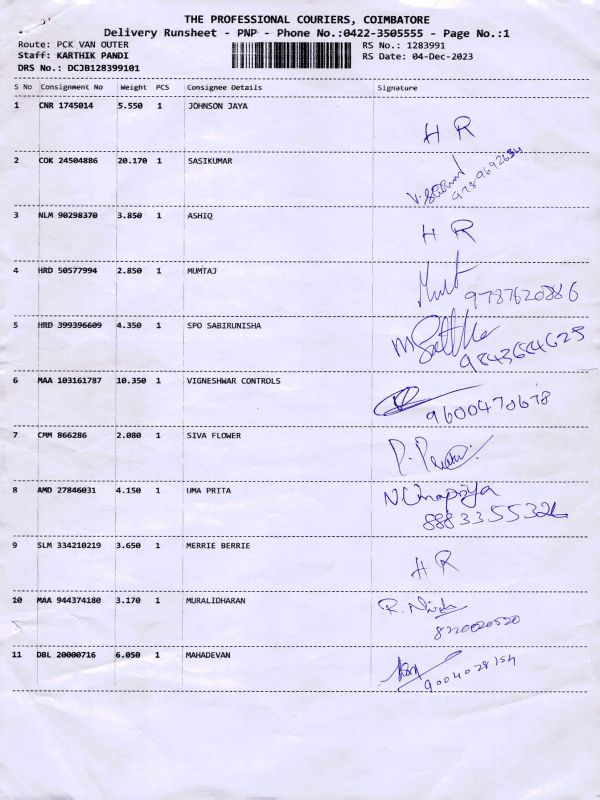 THE PROFESSIONAL COURIERS, COIMBATORE
Delivery Runsheet - PNP - Phone No.:0422-3505555 - Page No.:1
Route: PCK VAN OUTER RS No.: 1283991
Staff: KARTHIK PANDI RS Date: 04-Dec-2023
DRS No.: DCJB128399101
S No Consignment No Weight PCS Consignee Details Signature
1 CNR 1745014 5.550 1 JOHNSON JAYA
H R
2 COK 24504886 20.170 1 SASIKUMAR
9789692634
3 NLM 90298370 3.850 1 ASHIQ
H R
4 HRD 50577994 2.850 1 MUMTAJ
9787620886
5 HRD 399396609 4.350 1 SPO SABIRUNISHA
9843684625
6 MAA 103161787 10.350 1 VIGNESHWAR CONTROLS
9600470678
7 CMM 866286 2.080 1 SIVA FLOWER
8 AMD 27846031 4.150 1 UMA PRITA
N Umapriya
8883355326
9 SLM 334210219 3.650 1 MERRIE BERRIE
H R
10 MAA 944374180 3.170 1 MURALIDHARAN
8220020520
11 DBL 20000716 6.050 1 MAHADEVAN
9004028154